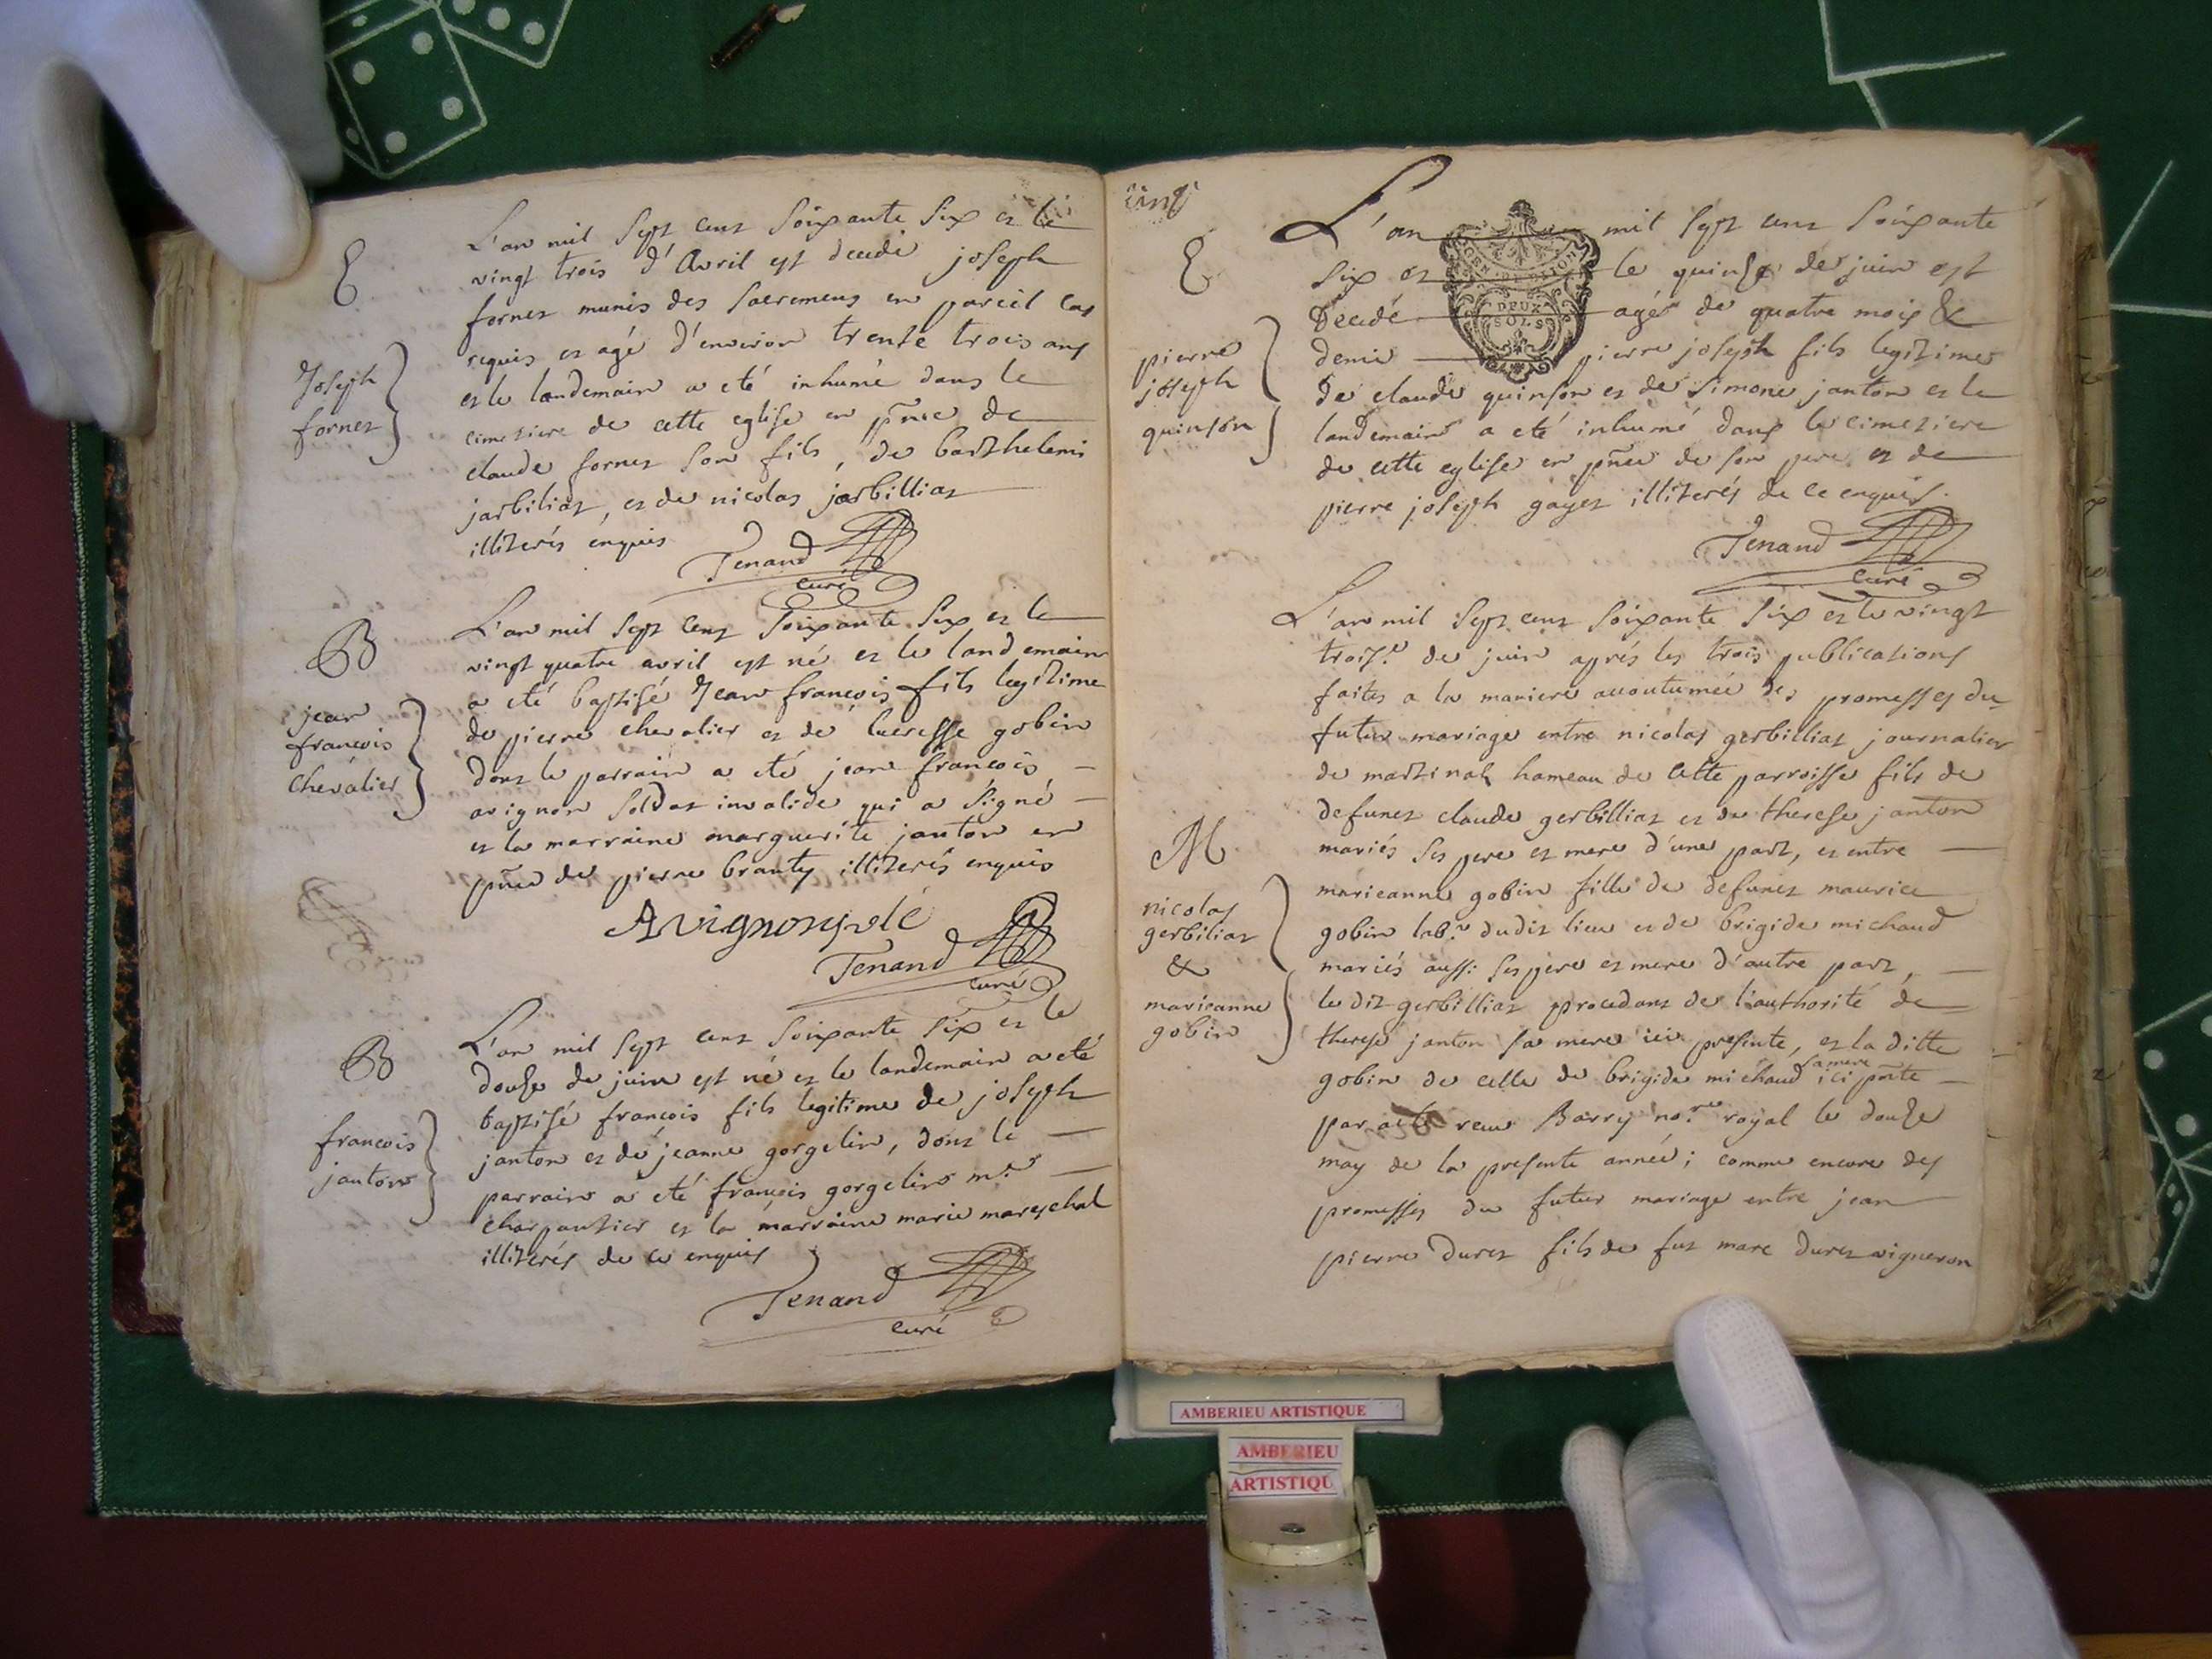 L'an mil sept cent soixante six et le
E
vingt trois d'Avril est decedé joseph
fornet munis des sacremens en pareil cas
requis et agé d'environ trente trois ans
Joseph
fornet
et le landemain a eté inhumé dans le
cimetiere de cette eglise en pñce de
claude fornet son fils, de barthelemi
jarbiliat, et de nicolas jarbilliat
illiterés enquis
Tenand
curé
L'an mil sept cent soixante six et le
B
vingt quatre avril est né et le landemain
a eté baptisé Jean françois fils legitime
jean
françois
chevalier
de pierre chevalier et de lucresse gobin
dont le parrain a eté jean françois
avignon soldat invalide qui a signé
et la marraine marguerite janton en
pñce de pierre branty illiterés enquis
Avignon
Tenand
curé
L'an mil sept cent soixante six et le
B
douse de juin est né et le landemain a eté
baptisé françois fils legitime de joseph
françois
janton
janton et de jeanne gorgelin, dont le
parrain a eté françois gorgelin m.e
charpantier et la marraine marie mareschal
illiterés de ce enquis
Tenand
curé
cinq
E
L'an mil sept cent soixante
six et le quinse de juin est
GEN DE DIJON
DEUX
SOLS
decedé agé de quatre mois &
demi pierre joseph fils legitime
pierre
joseph
quinson
de claude quinson et de simone janton et le
landemain a eté inhumé dans le cimetiere
de cette eglise en pñce de son pere et de
pierre joseph gayet illiterés de ce enquis.
Tenand
curé
L'an mil sept cent soixante six et le vingt
trois.e de juin aprés les trois publications
faites a la maniere acoutumée des promesses du
futur mariage entre nicolas gerbilliat journalier
de martinat hameau de cette parroisse fils de
defunct claude gerbilliat et de therese janton
M
mariés ses pere et mere d'une part, et entre
nicolas
gerbiliat
&
marieanne
gobin
marieanne gobin fille de defunct maurice
gobin lab.r dudit lieu et de brigide michaud
mariés aussi ses pere et mere d'autre part,
le dit gerbilliat procedant de l'authorité de
therese janton sa mere ici presente, et la ditte
gobin de celle de brigide michaud sa mere ici pñte
par acte reçu Barry no.re royal le douse
may de la presente année; comme encore des
promesses du futur mariage entre jean
pierre Duret fils de fut marc Duret vigneron
AMBERIEU ARTISTIQUE
AMBERIEU
ARTISTIQU